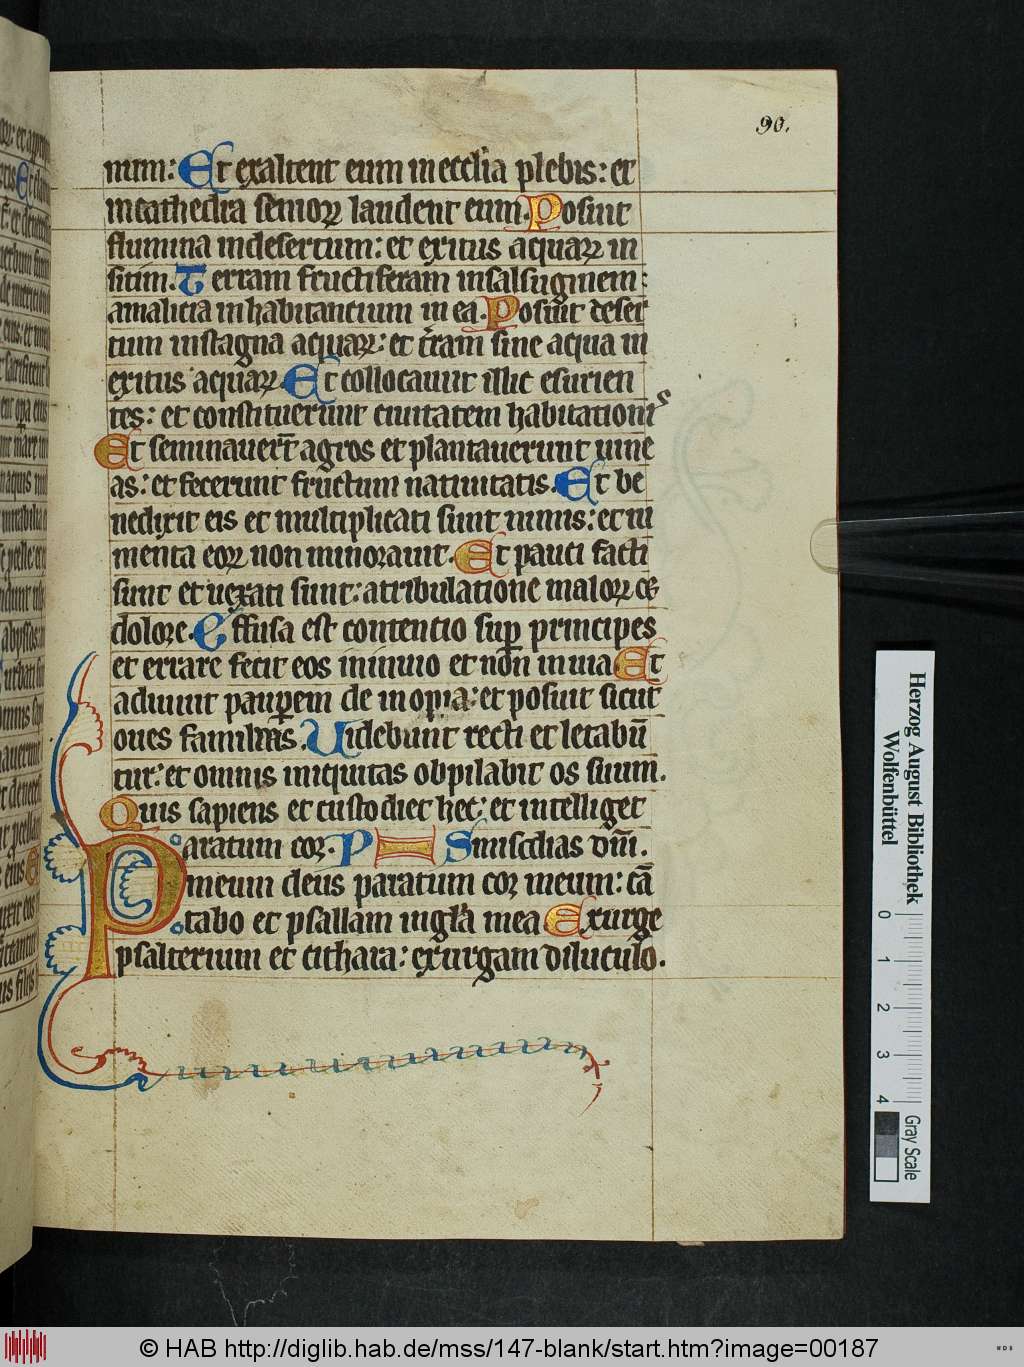 90.
num: Et exaltent eum in eccl'ia plebis: et
in cathedra senioꝝ laudent eum. Posuit
flumina in desertum: et exitus aquaꝝ in
sitim. Terram fructiferam in salsuginem:
amalicia inhabitantium in ea. Posuit deser
tum in stagna aquaꝝ: et t'ram sine aqua in
exitus aquaꝝ. Et collocauit illic esurien
tes: et constituerunt ciuitatem habitationis
Et seminauer̄t agros et plantauerunt uine
as: et fecerunt fructum natiuitatis. Et be
nedixit eis et multiplicati sunt nimis: et iu
menta eoꝝ non minorauit. Et pauci facti
sunt et uexati sunt: atribulatione maloꝝ et
dolore. Effusa est contencio sup̱ principes
et errare fecit eos in inuio et non in uia Et
adiuuit paup̱em de inopia: et posuit sicut
oues familias. Uidebunt recti et letabū
tur: et omnis iniquitas obpilabit os suum.
Quis sapiens et custodiet hec: et intelliget
Paratum cor. misc'dias dn̄i.
meum deus paratum cor meum: cā
tabo et psallam in gl'a mea Exurge
psalterium et cithara: exurgam diluculo.
Herzog August Bibliothek
Wolfenbüttel
0 1 2 3 4
Gray Scale
© HAB http://diglib.hab.de/mss/147-blank/start.htm?image=00187